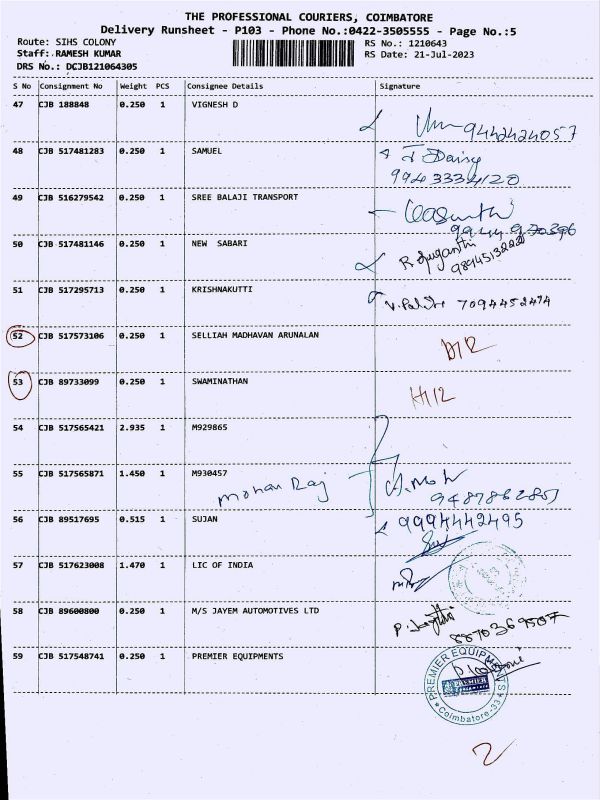 THE PROFESSIONAL COURIERS, COIMBATORE
Delivery Runsheet - P103 - Phone No.:0422-3505555 - Page No.:5
Route: SIHS COLONY
Staff: RAMESH KUMAR
DRS No.: DCJB121064305
RS No.: 1210643
RS Date: 21-Jul-2023
S No Consignment No Weight PCS Consignee Details Signature
47 CJB 188848 0.250 1 VIGNESH D
9442424057
48 CJB 517481283 0.250 1 SAMUEL J Daisy
9943334120
49 CJB 516279542 0.250 1 SREE BALAJI TRANSPORT Vasanthi
50 CJB 517481146 0.250 1 NEW SABARI R Suganthi
51 CJB 517295713 0.250 1 KRISHNAKUTTI 7094452474
52 CJB 517573106 0.250 1 SELLIAH MADHAVAN ARUNALAN
53 CJB 89733099 0.250 1 SWAMINATHAN
54 CJB 517565421 2.935 1 M929865
55 CJB 517565871 1.450 1 M930457
Mohan Raj
56 CJB 89517695 0.515 1 SUJAN 9994442495
57 CJB 517623008 1.470 1 LIC OF INDIA
58 CJB 89600800 0.250 1 M/S JAYEM AUTOMOTIVES LTD
59 CJB 517548741 0.250 1 PREMIER EQUIPMENTS
PREMIER EQUIPMENTS
PREMIER
Coimbatore-33
2